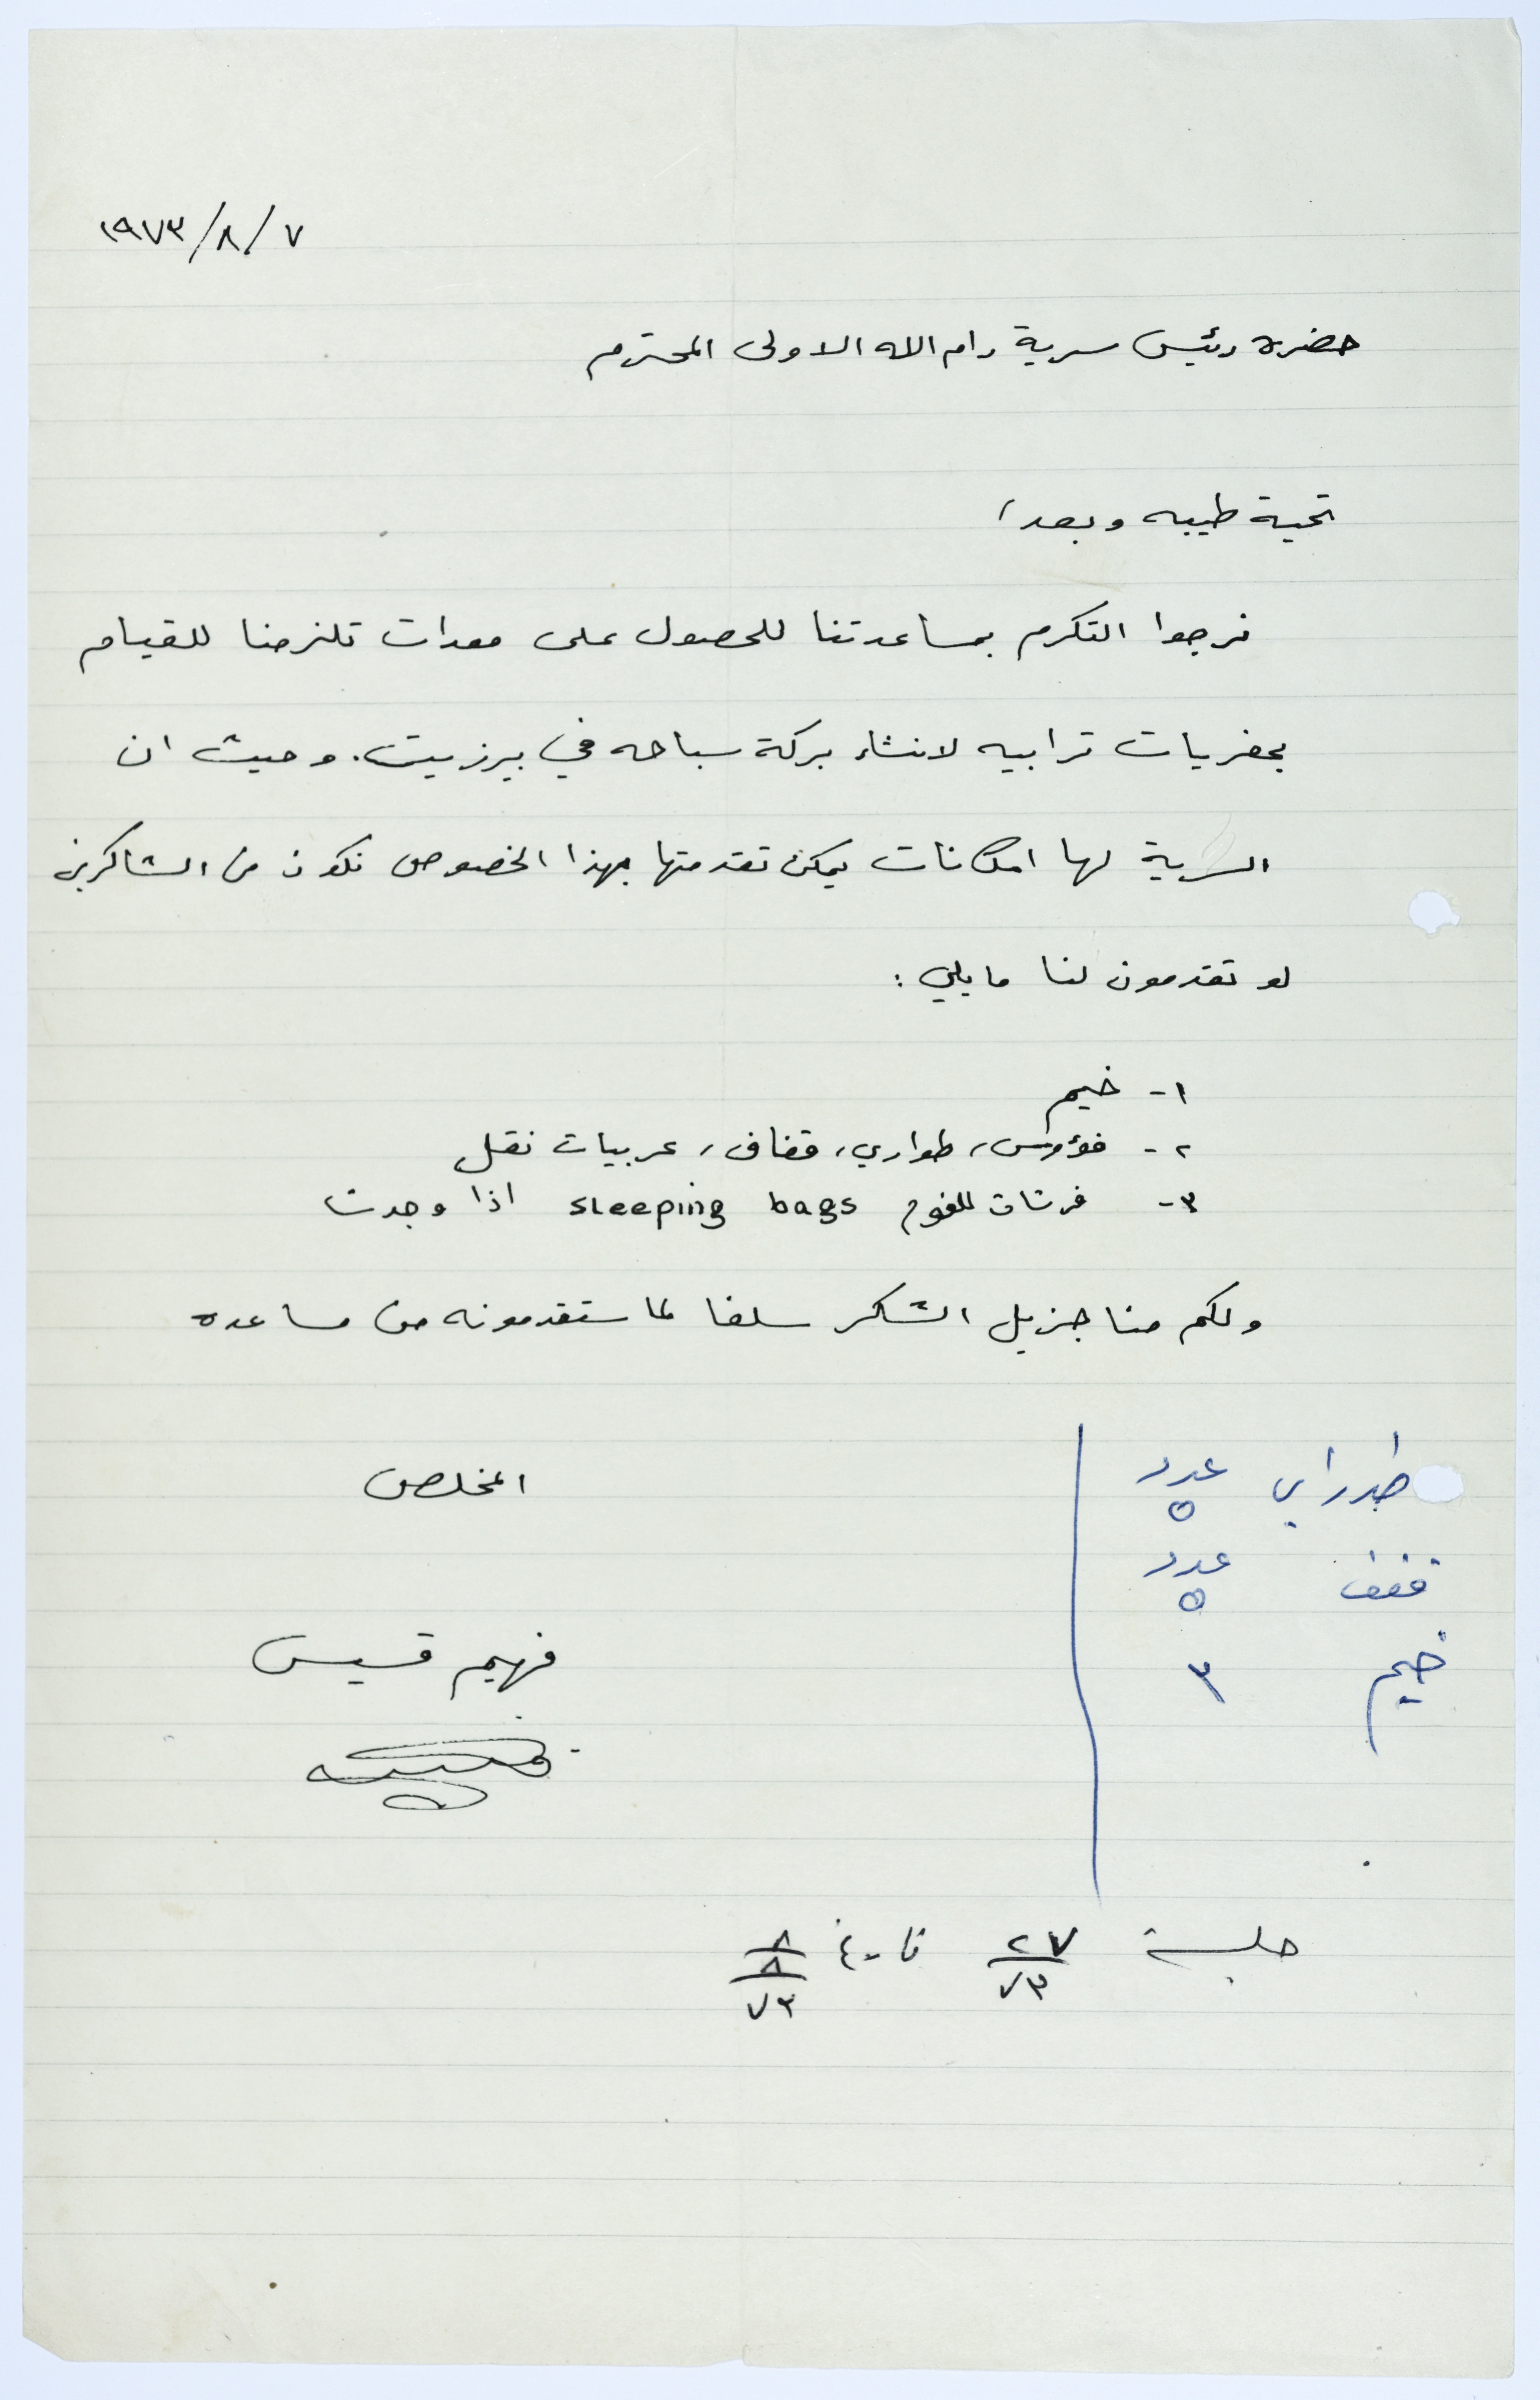 ١٩٧٣/٨/٧
حضرة رئيس سرية رام الله الاولى المحترم
تحية طيبه وبعد،
نرجوا التكرم بمساعدتنا للحصول على معدات تلزمنا للقيام
بحفريات ترابيه لانشاء بركة سباحه في بيرزيت. وحيث ان
السرية لها امكانات يمكن تقدمتها بهذا الخصوص نكون من الشاكرين
لو تقدمون لنا ما يلي :
١- خيم
٢- فؤوس، طواري، قفاف، عربيات نقل
٣- فرشات للنوم sleeping bags اذا وجدت
ولكم منا جزيل الشكر سلفا لما ستقدمونه من مساعده
المخلص
فهيم قسيس
طوراي عدد ٥
قفف عدد ٥
خيم ٣
جلسة ٢٧/٧٣ تاريخ ٨/٨/٧٣